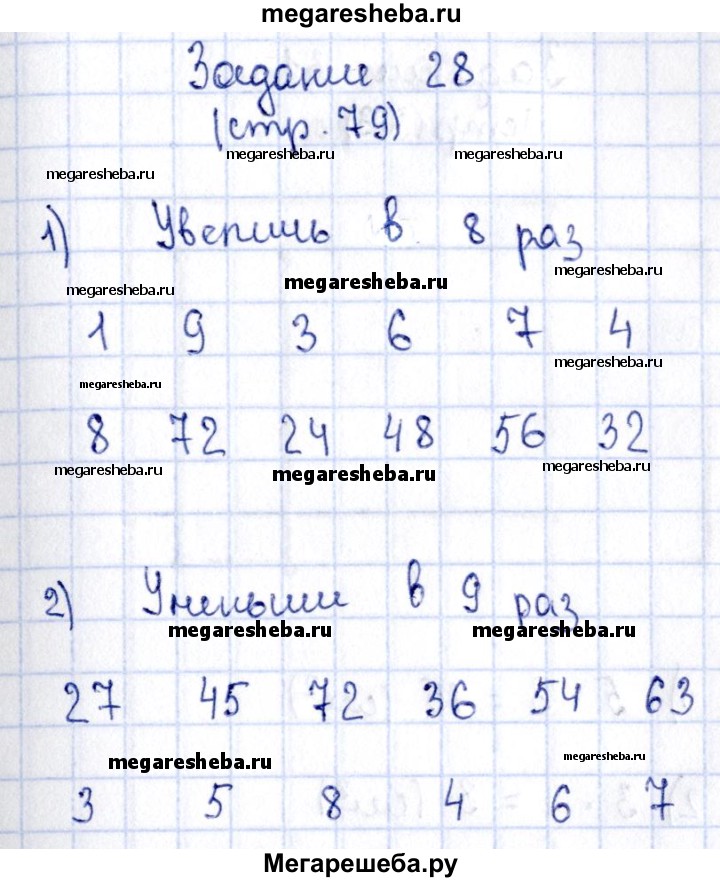 megaresheba.ru
Задание 28
(стр. 79)
megaresheba.ru megaresheba.ru
megaresheba.ru
1) Увеличь в 8 раз
megaresheba.ru
megaresheba.ru
megaresheba.ru
1 9 3 6 7 4
megaresheba.ru
megaresheba.ru
8 72 24 48 56 32
megaresheba.ru megaresheba.ru megaresheba.ru
2) Уменьши в 9 раз
megaresheba.ru megaresheba.ru
27 45 72 36 54 63
megaresheba.ru megaresheba.ru
3 5 8 4 6 7
Мегарешеба.ру